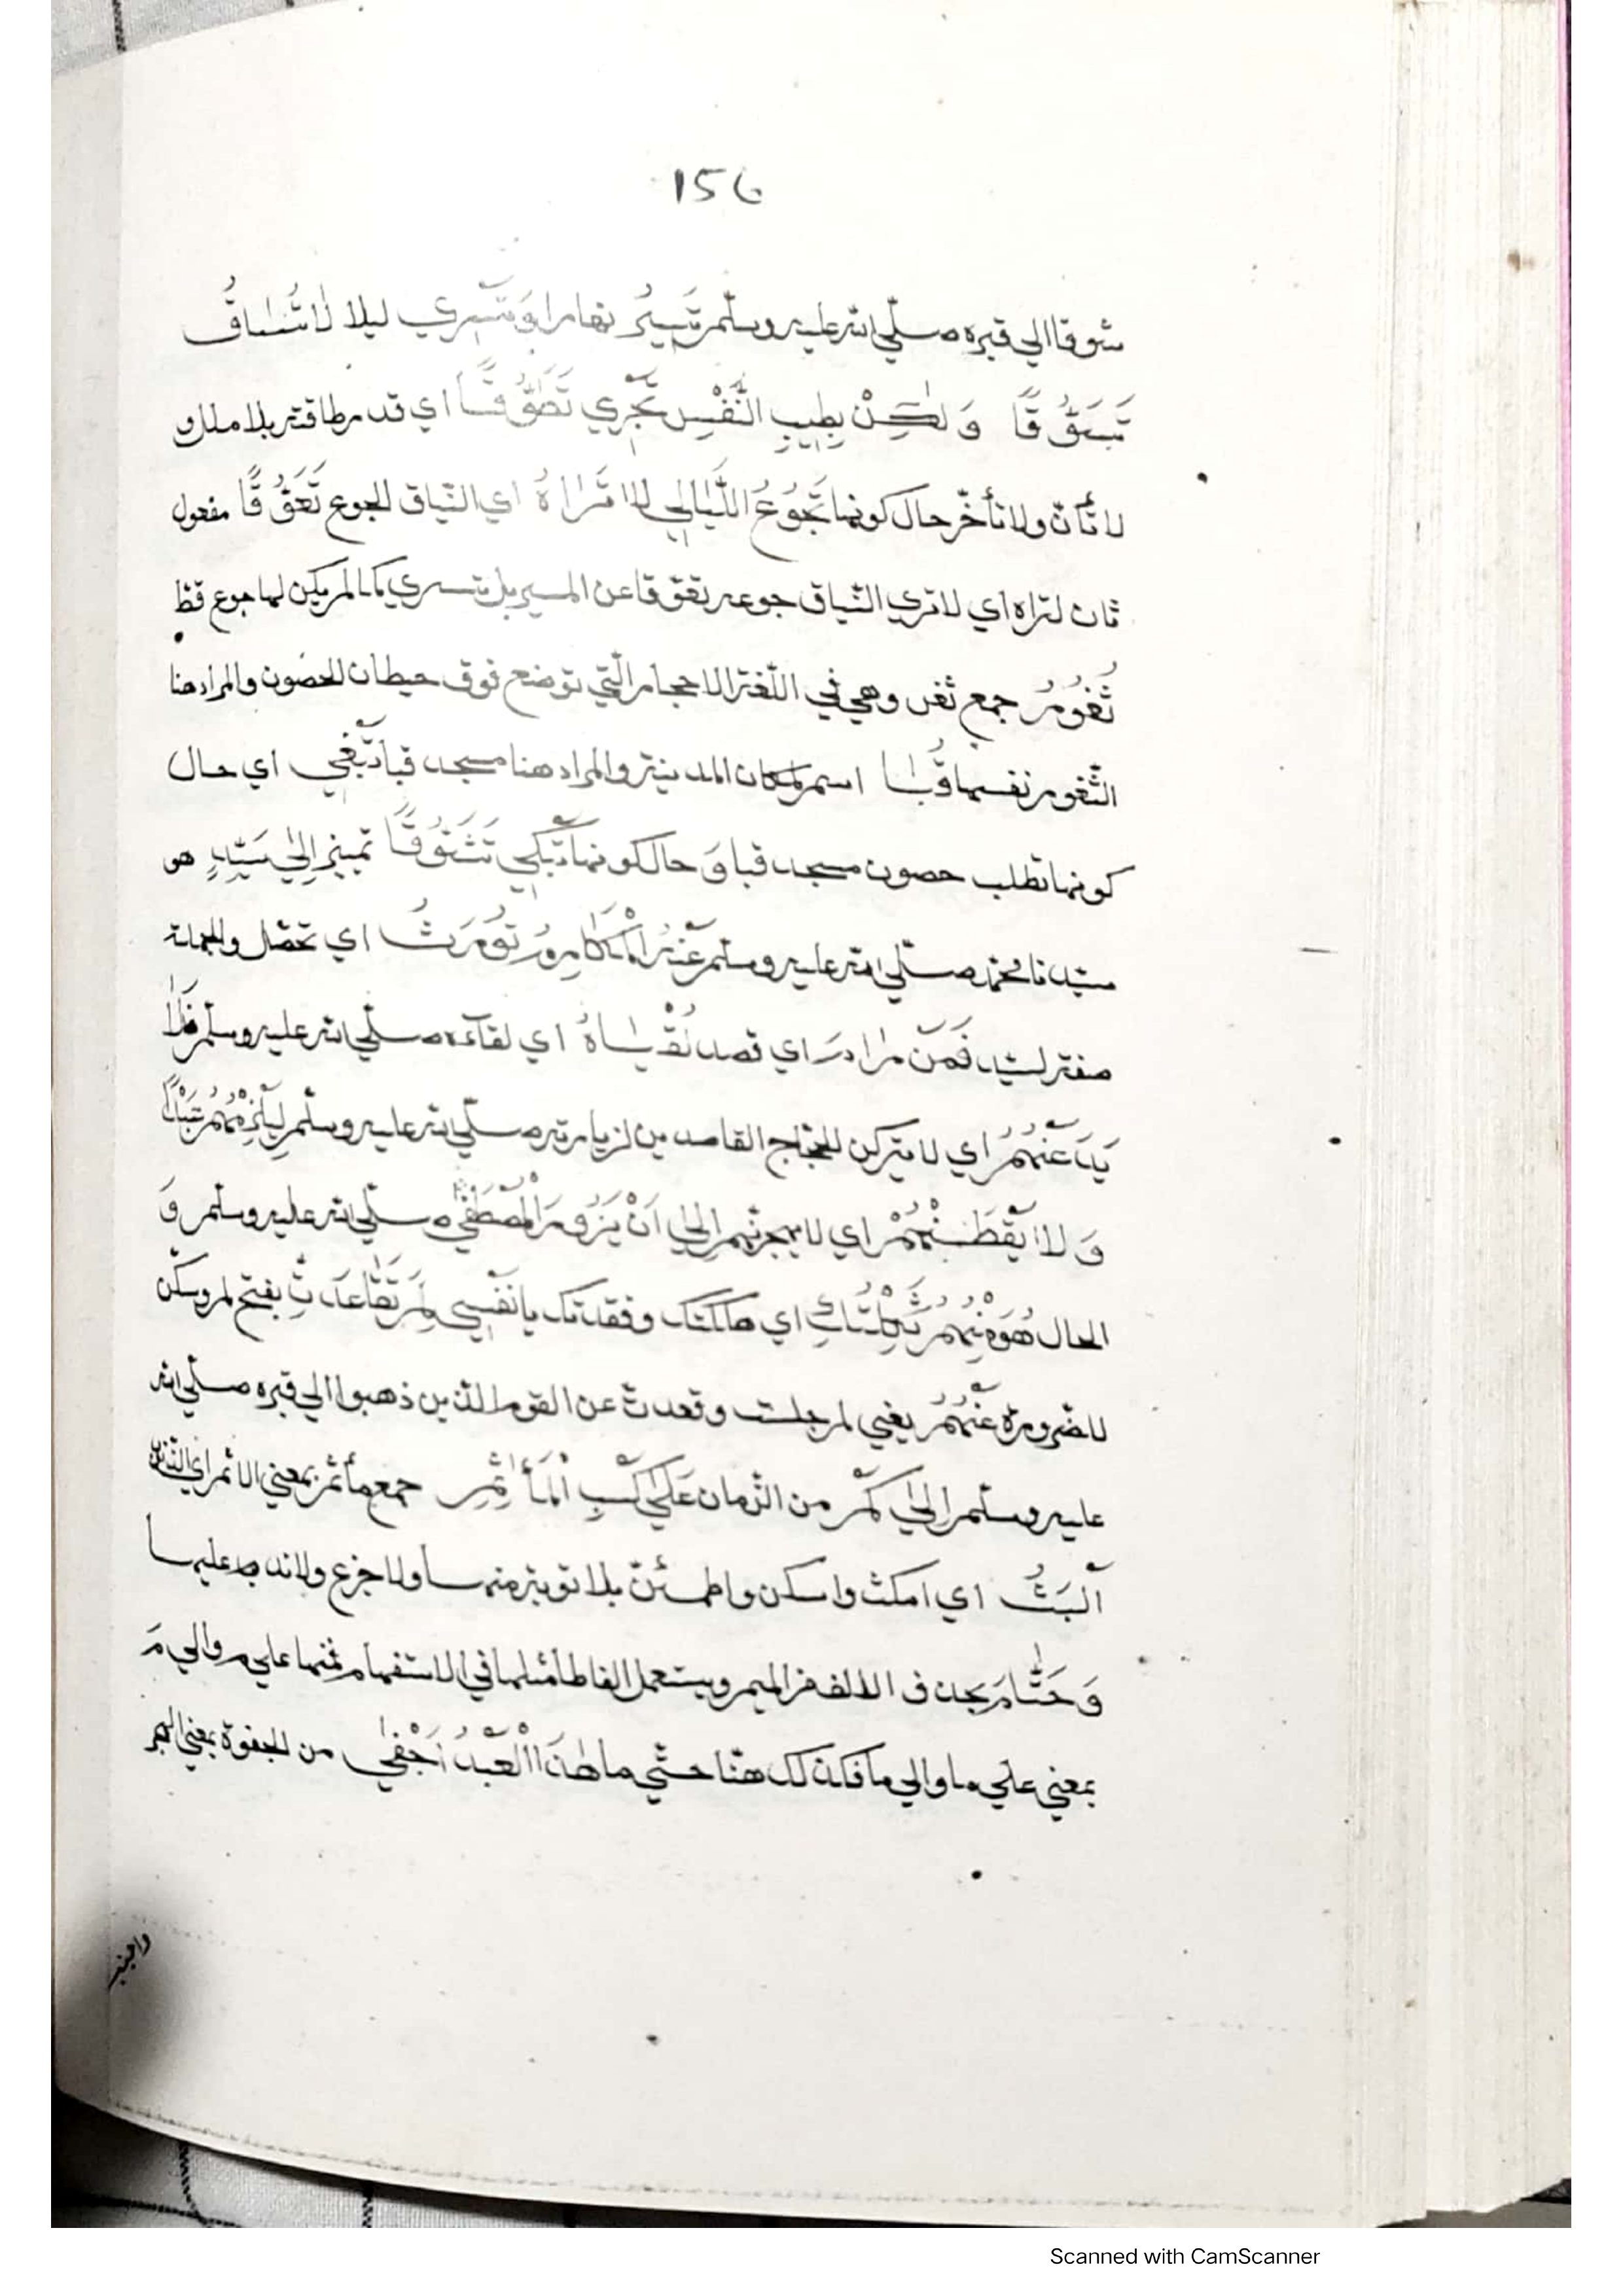 156
شوقا الي قبره صلّي الله عليه وسلّم تَسِيرُ نهارا وَتَسْرِي ليلا لَاتُسَاقُ
تَسَوُّقًا وَلٰكِنْ بِطِيبِ النَّفْسِ تَجْرِي تَطَوُّقًا اي قدر طاقته بلا ملل و
لا تأنّ ولا تأخّر حال كونها تَجُوعُ اللَّيَالِي لَا تَرَاهُ اي النّياق الجوع تَعَوُّقًا مفعول
ثان لتراه اي لا تري النّياق جوعه تعوّقا عن المسير بل تسري كما لم يكن لها جوع قطّ
ثُغُورُ جمع ثغر وهي في اللّغة الاحجار الّتي توضع فوق حيطان الحصون والمراد هنا
الثّغور نفسها قُبَا اسم لمكان المدينة والمراد هنا مسجد قبا تَبْغِي اي حال
كونها تطلب حصون مسجد قبا وَ حال كونها تَبْكِي تَشَوُّقًا تمييز اِلٰي سَيِّدٍ هو
سيّدنا محمّد صلّي الله عليه وسلّم عَنْهُ الْمَكَارِمُ تُورَثُ اي تحصّل والجملة
صفة لسيّد فَمَنْ رَامَ اي قصد لُقْيَاهُ اي لقاءه صلّي الله عليه وسلّم فَلَا
يَدَعَنْهُمُ اي لا يتركن الحجّاج القاصدين لزيارته صلّي الله عليه وسلّم لِيَلْزَمْهُمُ
وَ لَا يَقْطَعَنْهُمْ اي لا يهجرنّهم اِلٰي اَنْ يَزُورَ الْمُصْطَفٰي صلّي الله عليه وسلّم وَ
الحال هُوَ مِنْهُمُ ثَكِلْتُكِ اي هلكتك وفقدتك يا نَفْسِي لِمْ تَقَاعَدْتِ بفتح لم وسكّن
للضّرورة عَنْهُمُ يعني لم جلست وقعدت عن القوم الّذين ذهبوا الي قبره صلّي الله
عليه وسلّم اِلٰي كَمْ من الزّمان عَلٰي كَسْبِ الْمَآثِمِ جمع مأثم بمعني الاثم اي الذّنب
اَلْبَثُ اي امكث واسكن واطمئنّ بلا توبة منها ولا جزع ولا ندم عليها
وَ حَتَّامَ بحذف الالف في الميم ويستعمل الفاظ امثلها في الاستفهام منها علي م والي مَ
بمعني علي ما والي ما فكذلك هنا حتّي ما هٰذَا الْعَبْدُ اَجْفٰي من الجفوة بمعني الهجر